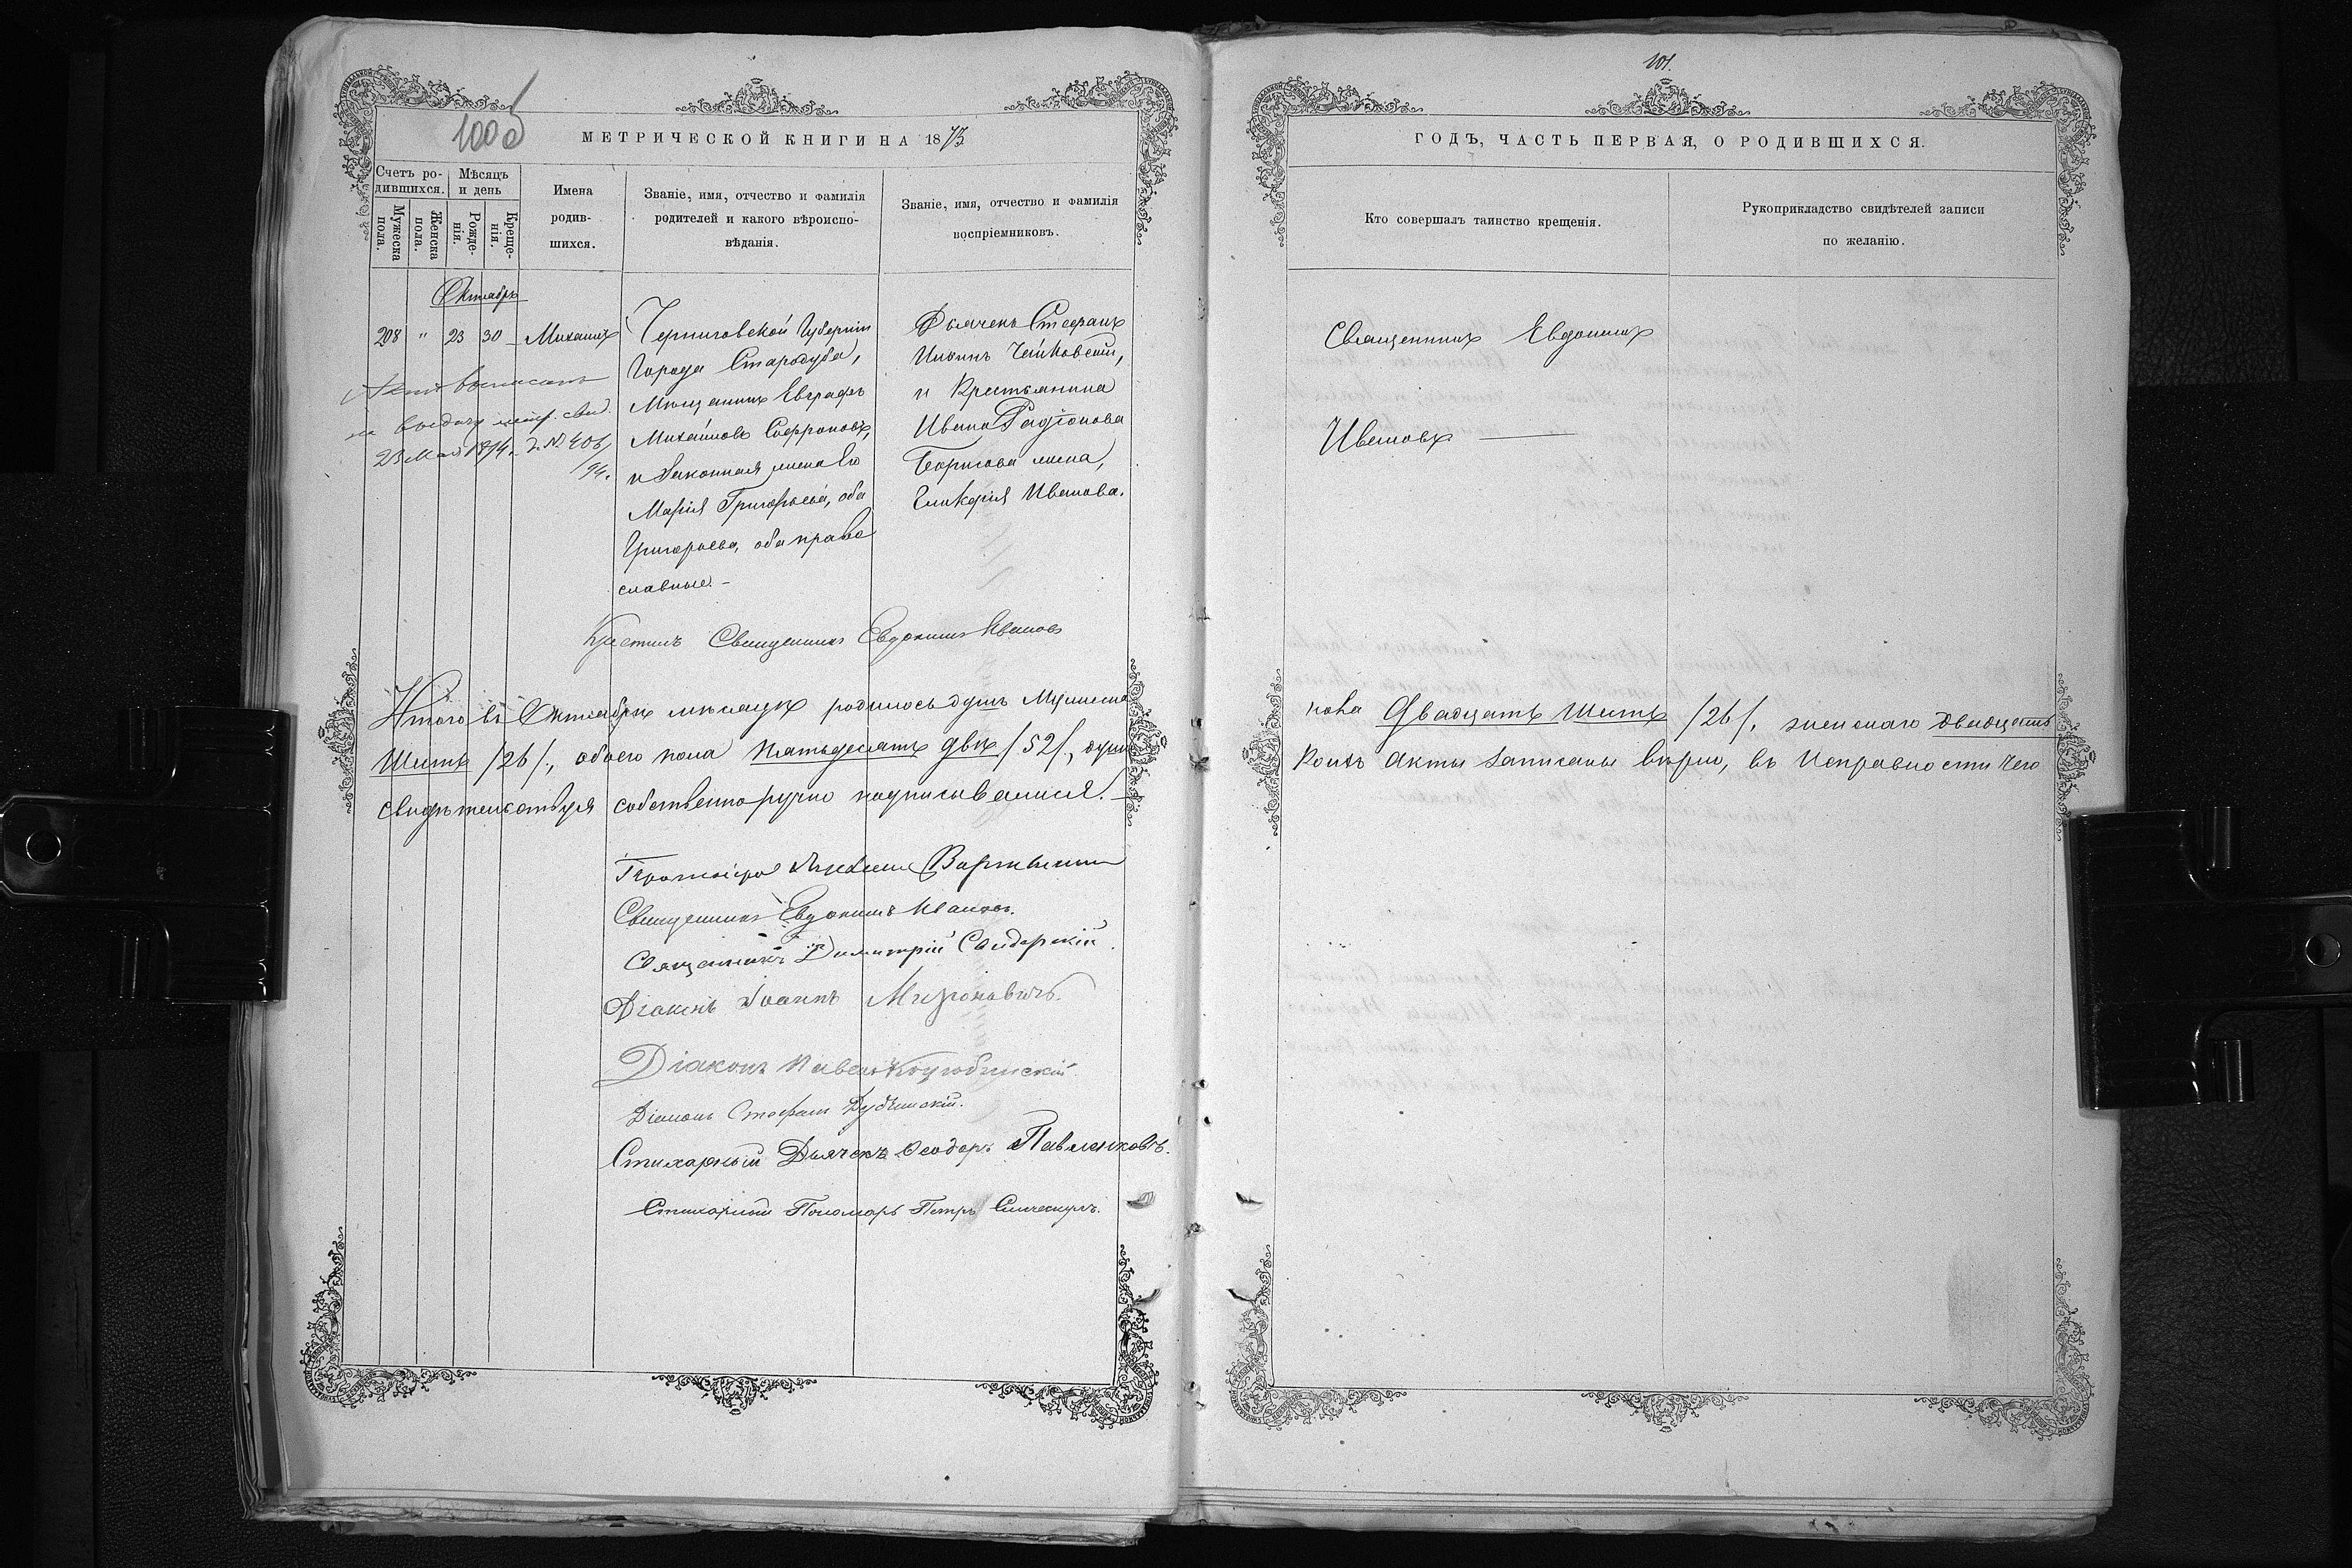 100 об
МЕТРИЧЕСКОЙ КНИГИ НА 1873
Счетъ ро-
дившихся.
Мѣсяцъ
и день
Мужеска
пола.
Женска
пола.
Рожде-
нія.
Креще-
нія.
Имена
родив-
шихся.
Званіе, имя, отчество и фамилія
родителей и какого вѣроиспо-
вѣданія.
Званіе, имя, отчество и фамилія
воспріемниковъ.
Октябрь
208 " 23 30 Михаилъ
Черниговской Губерніи
Города Стародуба,
Мѣщанинъ Евграфъ
Михайловъ Софроновъ,
и Законная жена Его
Марія Григорьева, оба
Григорьева, оба право
славные. –
Дьячекъ Стефанъ
Чайковскій,
и Крестьянина
Ивана Радіонова
Борисова жена,
Гликерія Иванова.
выдачу метр. свид.
23 Мая 1894 г. № 406
/94.
Крестилъ Священникъ Евдокимъ Ивановъ
Итого въ Октябрѣ мѣсяцѣ родилось душъ Мужеска
Шесть /26/., обоего пола пятьдесятъ двѣ /52/., души
свидѣтельствуя собственноручно подписывались. —
Священникъ Евдокимъ Ивановъ.
Священникъ Димитрій
Діаконъ Іоаннъ Мизюкевичъ.
Діаконъ Павелъ Коцюбинскій
Діаконъ Стефанъ Дубинскій.
Стихарный Дьячекъ Ѳеодоръ Павленковъ.
Стихарный Пономарь Петръ
101.
ГОДЪ, ЧАСТЬ ПЕРВАЯ, О РОДИВШИХСЯ.
Кто совершалъ таинство крещенія.
Рукоприкладство свидѣтелей записи
по желанію.
Священникъ Евдокимъ
Ивановъ —
пола Двадцать Шесть /26/. женскаго двадцать
Коихъ Акты записаны вѣрно, въ Исправности чего